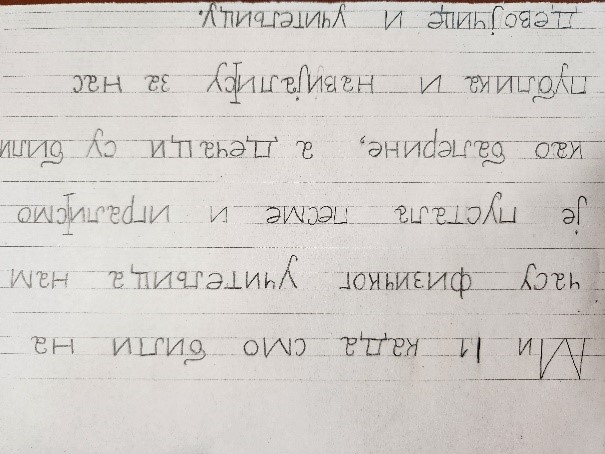 Ми 11 када смо били на
часу физичког учитељица нам
је пустала песме и играли|смо
као балерине, а дечаци су били
публика и навијали|су за нас
девојчице и учитељицу.